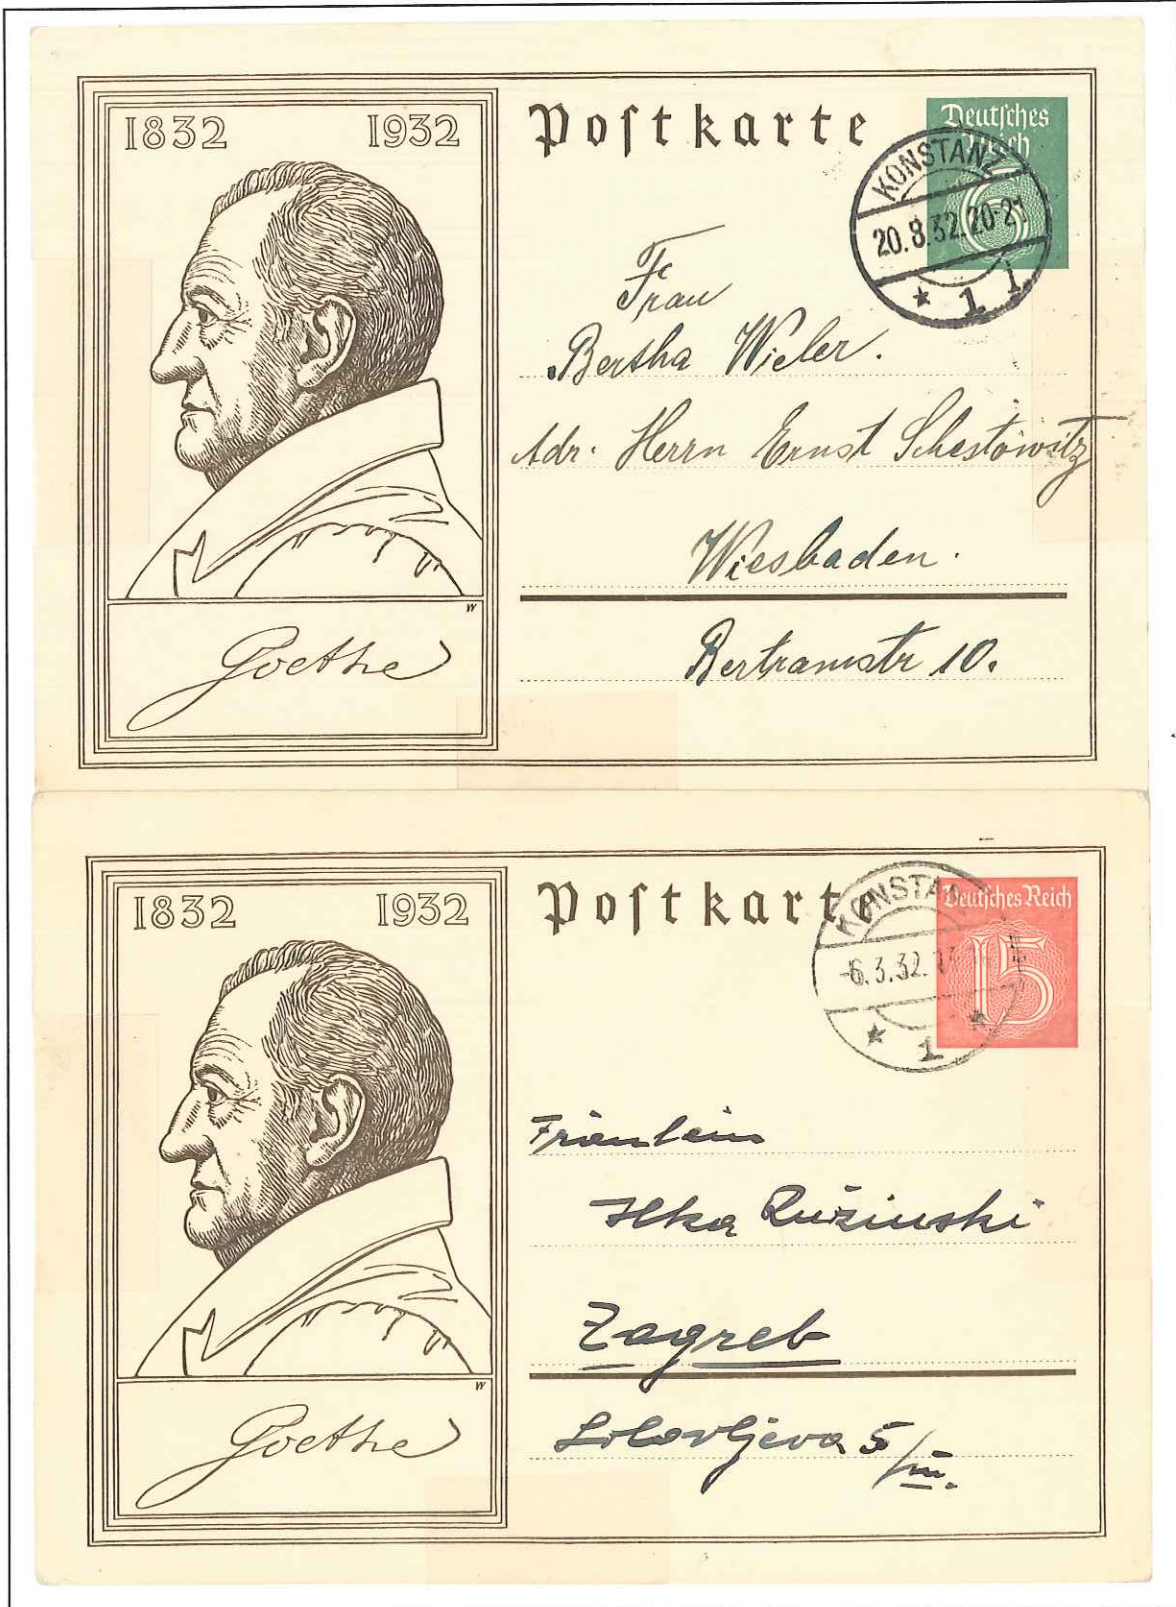 1832 1932
Postkarte
Deutsches
Reich
6
KONSTANZ
20.8.32.20-21
* 1 i
Frau
Bertha Wieler.
Adr. Herrn Ernst Schestowitz
Wiesbaden.
Bertramstr 10.
W
Goethe
1832 1932
Postkarte
Deutsches Reich
15
KONSTAN
-6.3.32.
* 1 *
Fräulein
Ilka Ružinski
Zagreb
5/III.
W
Goethe